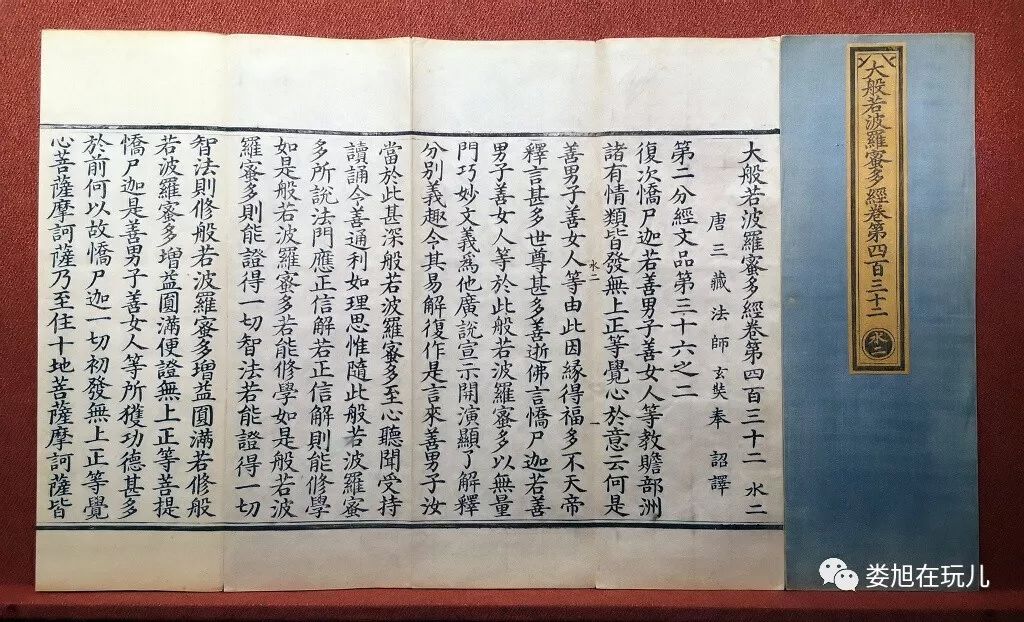 大般若波羅蜜多經卷第四百三十二
水二
大般若波羅蜜多經卷第四百三十二 水二
唐三藏法師玄奘奉 詔譯
第二分經文品第三十六之二
復次憍尸迦若善男子善女人等教贍部洲
諸有情類皆發無上正等覺心於意云何是
善男子善女人等由此因緣得福多不天帝
水二 一
釋言甚多世尊甚多善逝佛言憍尸迦若善
男子善女人等於此般若波羅蜜多以無量
門巧妙文義為他廣說宣示開演顯了解釋
分別義趣令其易解復作是言來善男子汝
當於此甚深般若波羅蜜多至心聽聞受持
讀誦令善通利如理思惟隨此般若波羅蜜
多所說法門應正信解若正信解則能修學
如是般若波羅蜜多若能修學如是般若波
羅蜜多則能證得一切智法若能證得一切
智法則修般若波羅蜜多增益圓滿若修般
若波羅蜜多增益圓滿便證無上正等菩提
憍尸迦是善男子善女人等所獲功德甚多
於前何以故憍尸迦一切初發無上正等覺
心菩薩摩訶薩乃至住十地菩薩摩訶薩皆
娄旭在玩儿